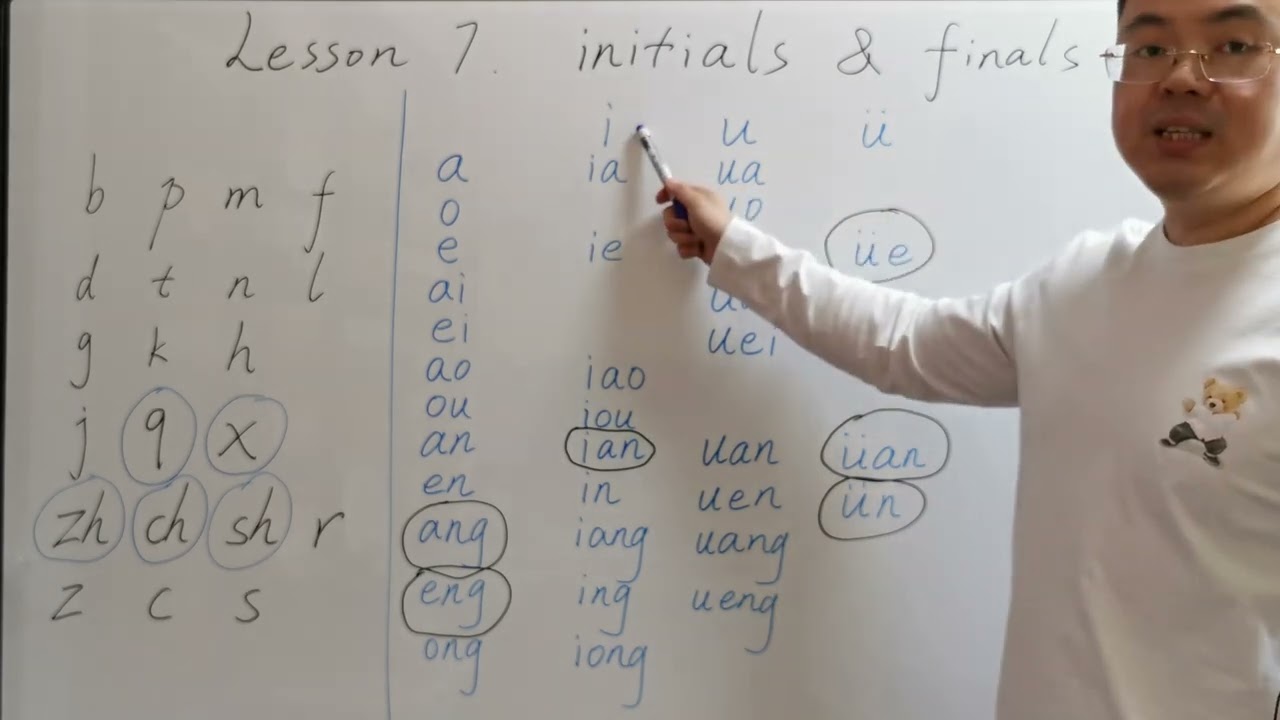 Lesson 7. initials & finals
i u ü
b p m f a ia ua
o
d t n l e ie üe
ai
g k h ei uei
ao iao
j q x ou iou
an ian uan üan
en in uen ün
zh ch sh r ang iang uang
z c s eng ing ueng
ong iong